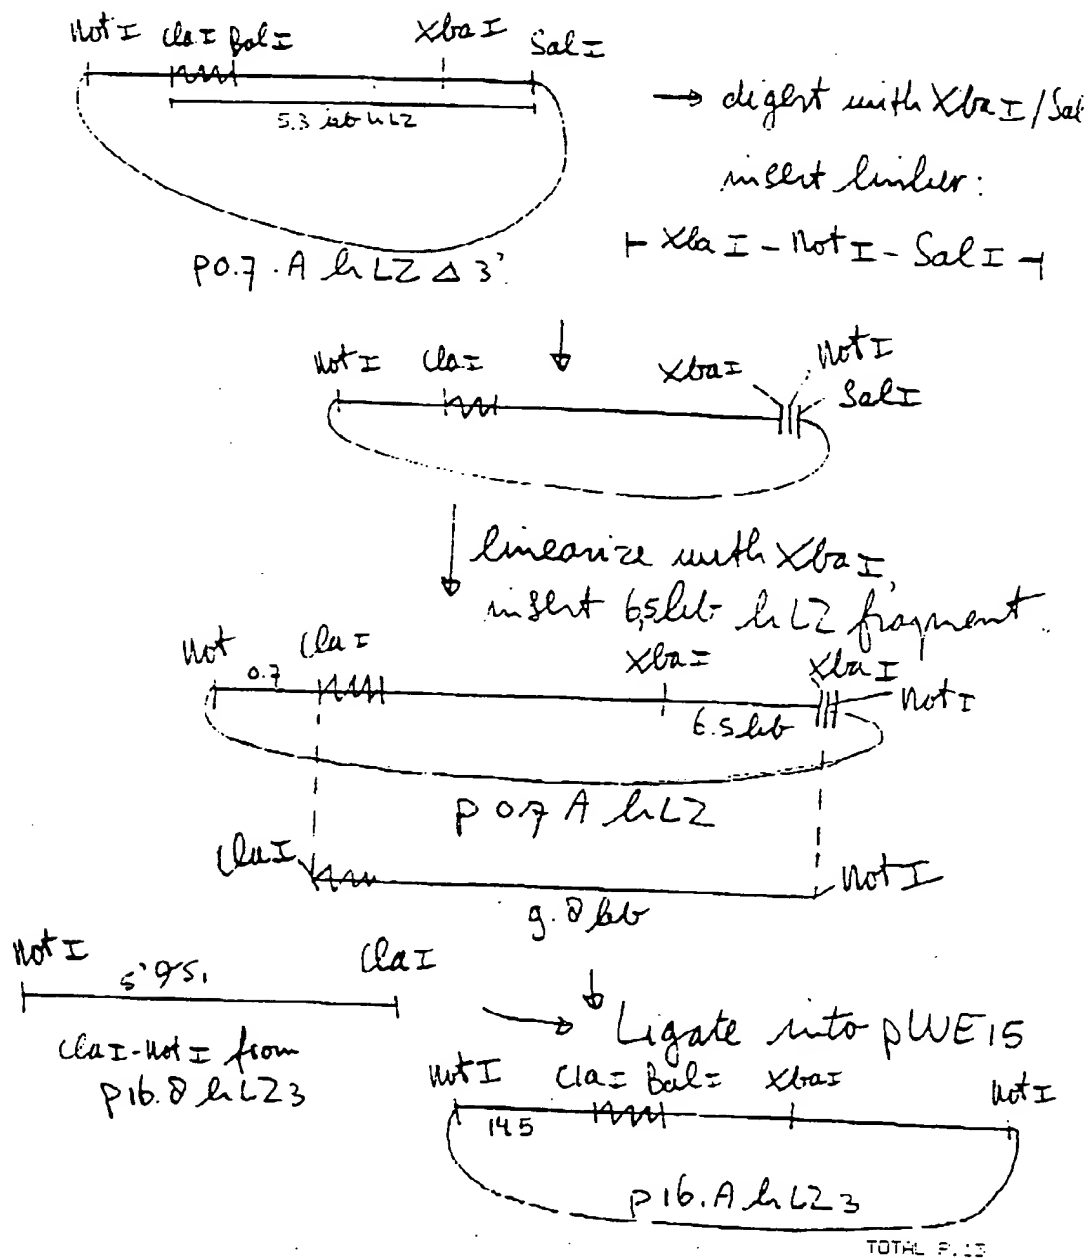 Not I ClaI BalI XbaI SalI
5.3 kb hLZ
→ digest with XbaI/Sal
insert linker:
⊢ XbaI - NotI - SalI ⊣
p0.7.A hLZ Δ3'
NotI ClaI XbaI NotI
SalI
linearize with XbaI,
insert 6,5 kb hLZ fragment.
Not ClaI XbaI XbaI
0.7 NotI
6.5 kb
p 0.7 A hLZ
ClaI NotI
9.8 kb
NotI ClaI
5'
Ligate into pWE15
ClaI-NotI from
p16.8 hLZ3
NotI ClaI BalI XbaI NotI
14.5
p16.A hLZ3
TOTAL P.13